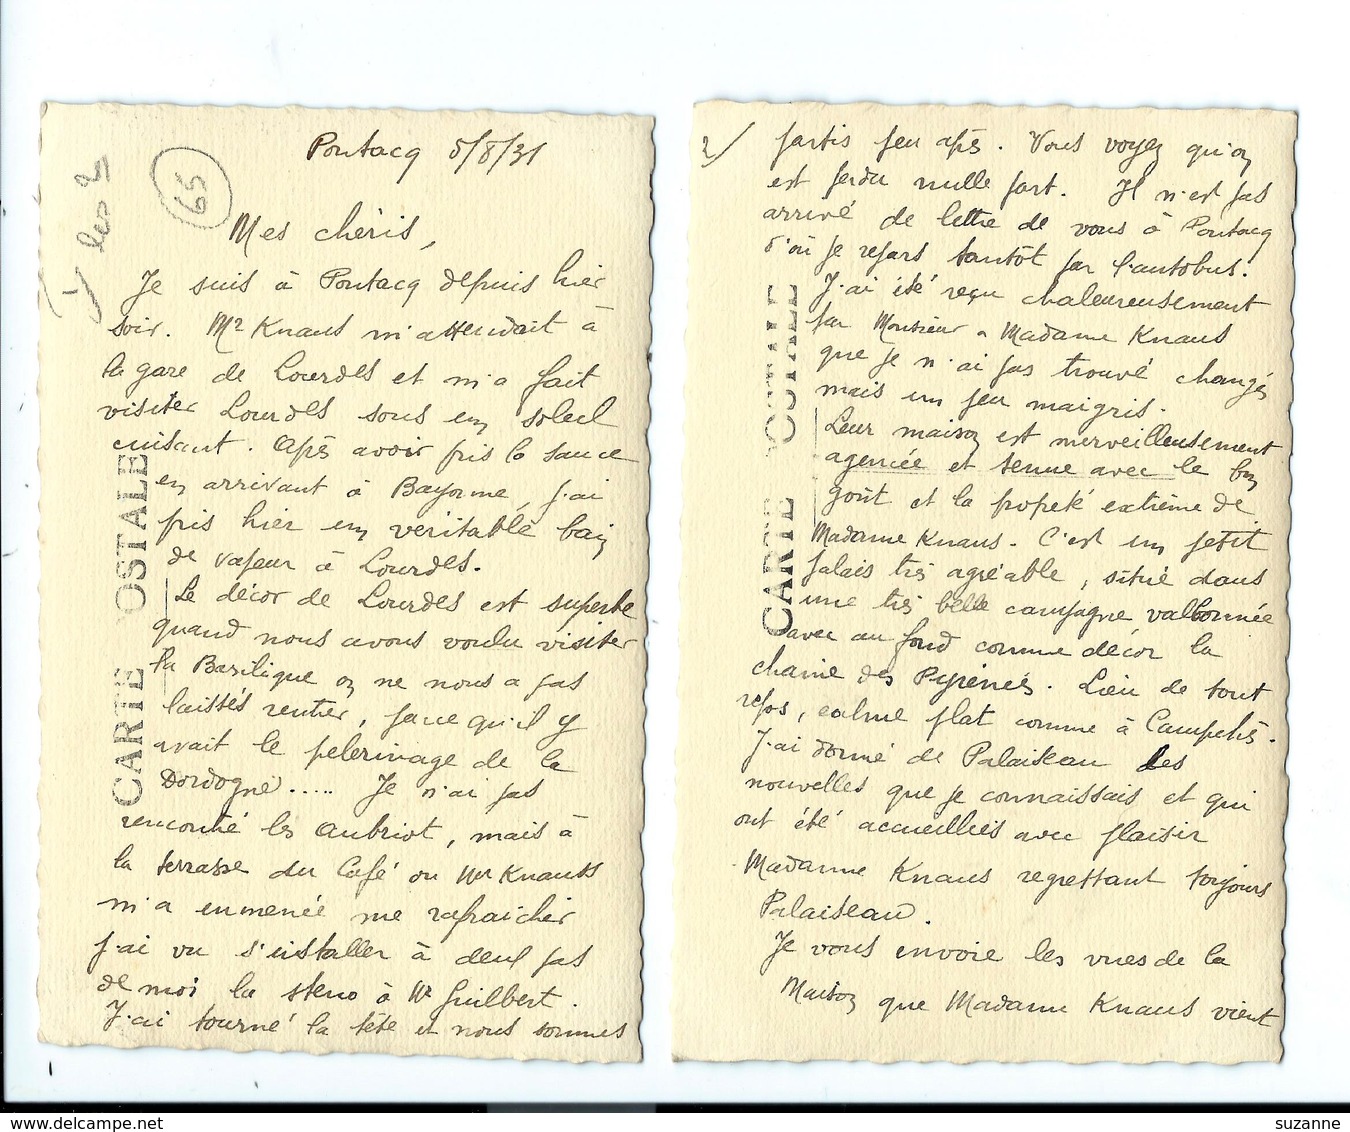 Pontacq 5/8/31
65
les 2
Mes chéris,
Je suis à Pontacq depuis hier
soir. Mr Knaus m'attendait à
la gare de Lourdes et m'a fait
visiter Lourdes sous un soleil
cuisant. Après avoir pris la sauce
en arrivant à Bayonne, j'ai
pris hier un véritable bain
de vapeur à Lourdes.
Le décor de Lourdes est superbe
quand nous avons voulu visiter
la Basilique on ne nous a pas
laissés rentrer, parce qu'il y
avait le pelerinage de la
Dordogne..... Je n'ai pas
rencontré les Aubriot, mais à
la terrasse du Café où Mr Knauss
m'a emmenée me rafraichir
j'ai vu s'installer à deux pas
de moi, la steno à Mr Guilbert.
J'ai tourné la tête et nous sommes
CARTE POSTALE
2/
partis peu après. Vous voyez qu'on
est perdu nulle part. Il n'est pas
arrivé de lettre de vous à Pontacq
d'où je repars tantôt par l'autobus.
J'ai été reçu chaleureusement
par Monsieur & Madame Knaus
que je n'ai pas trouvé changés
mais un peu maigris.
Leur maison est merveilleusement
agencée et tenue avec le bon
goût et la propreté extrême de
Madame Knaus. C'est un petit
palais très agréable, situé dans
une très belle campagne vallonnée
avec au fond comme décor la
chaine des Pyrénés. Lieu de tout
repos, calme plat comme à Campehis.
J'ai donné de Palaiseau des
nouvelles que je connaissais et qui
ont été accueillies avec plaisir
Madame Knaus regrettant toujours
Palaiseau.
Je vous envoie les vues de la
Maison que Madame Knaus vient
CARTE POSTALE
suzanne